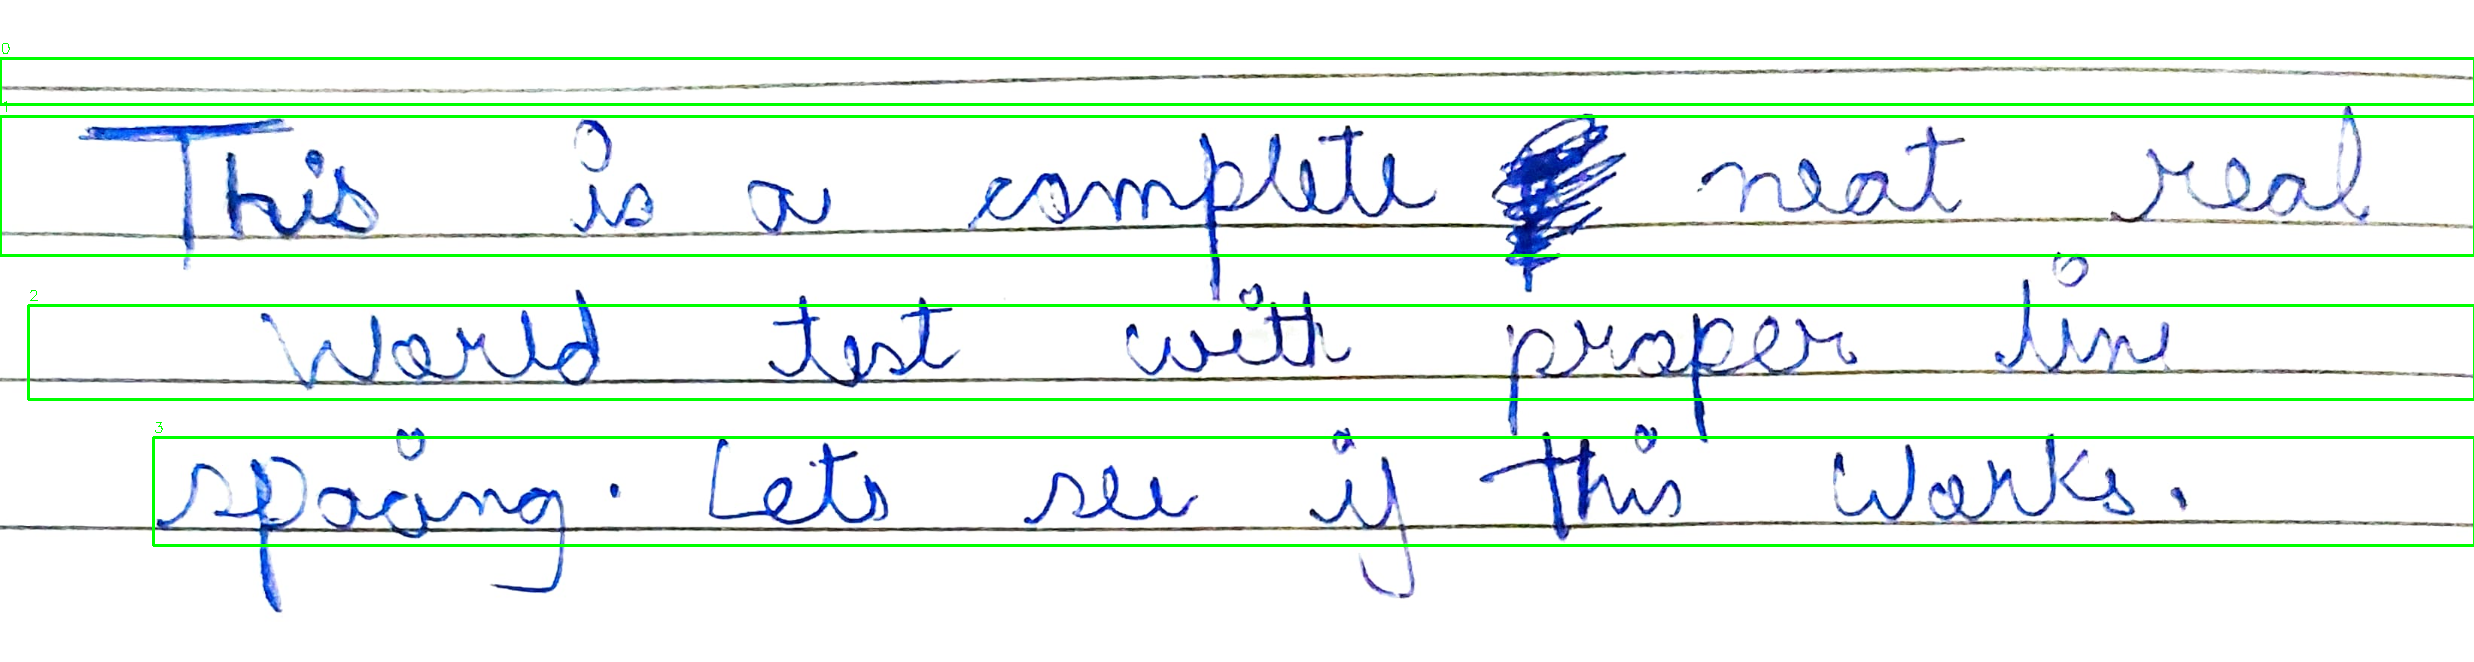 This is a complete neat real
World test with proper line
spacing. Lets see if this Works.